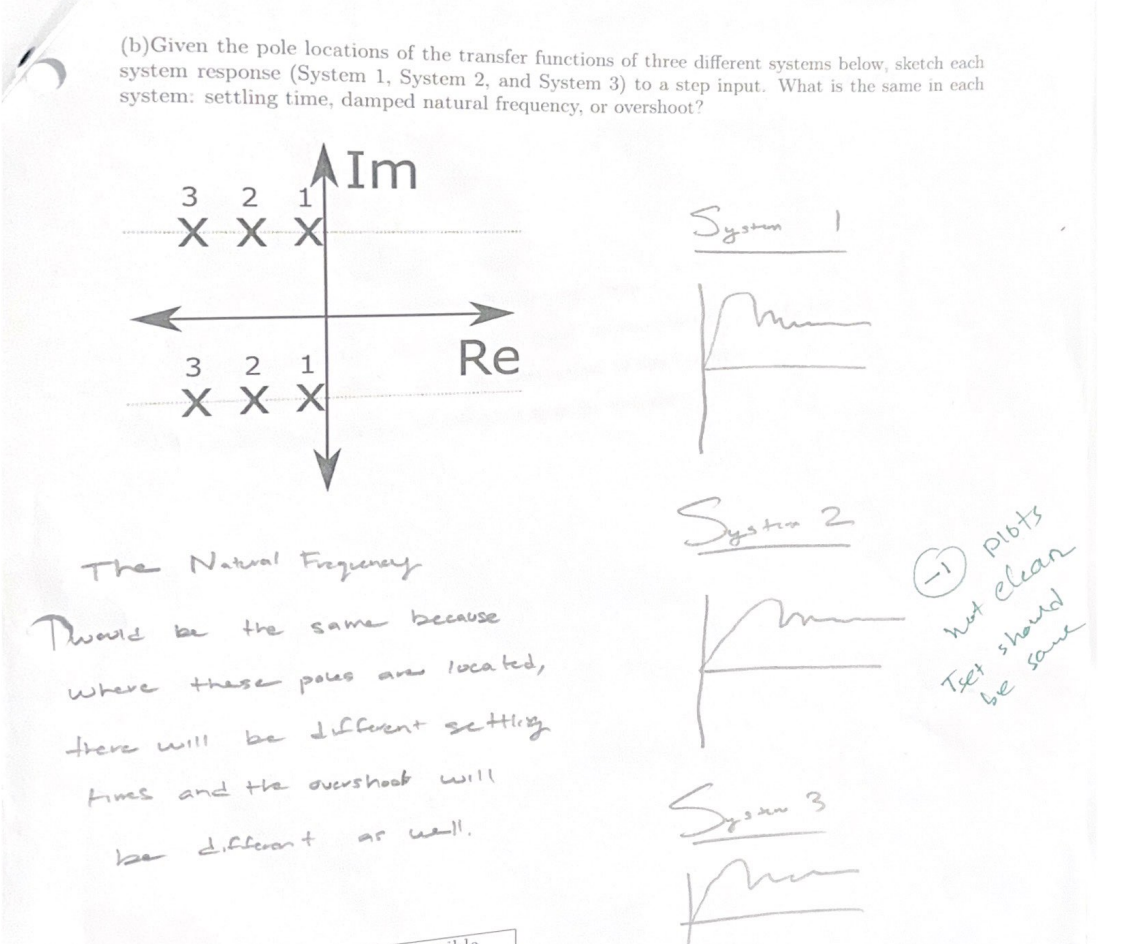 (b)Given the pole locations of the transfer functions of three different systems below, sketch each
system response (System 1, System 2, and System 3) to a step input. What is the same in each
system: settling time, damped natural frequency, or overshoot?
Im
3 2 1
X X X
Re
3 2 1
X X X
The Natural Frequency
would be the same because
where these poles are located,
there will be different settling
times and the overshoot will
be different as well.
System 1
System 2
System 3
-1 plots
not clean
Tset should
be same